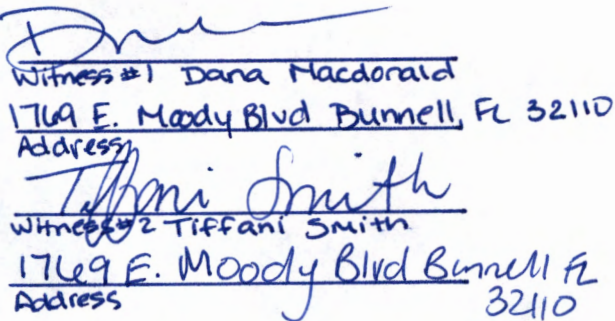 Witness #1 Dana Macdonald
1769 E. Moody Blvd Bunnell, FL 32110
Address
Tiffani Smith
Witness #2 Tiffani Smith
1769 E. Moody Blvd Bunnell FL
32110
Address